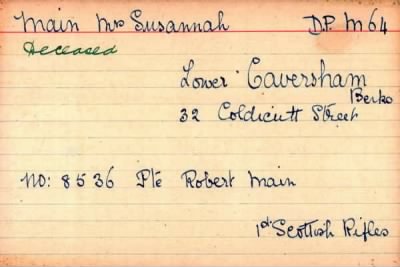 Main Mrs Susannah D.P. M 64
deceased
Lower Caversham
Berks
32 Coldicutt Street
NO: 8536 Pte Robert Main
1st Scottish Rifles